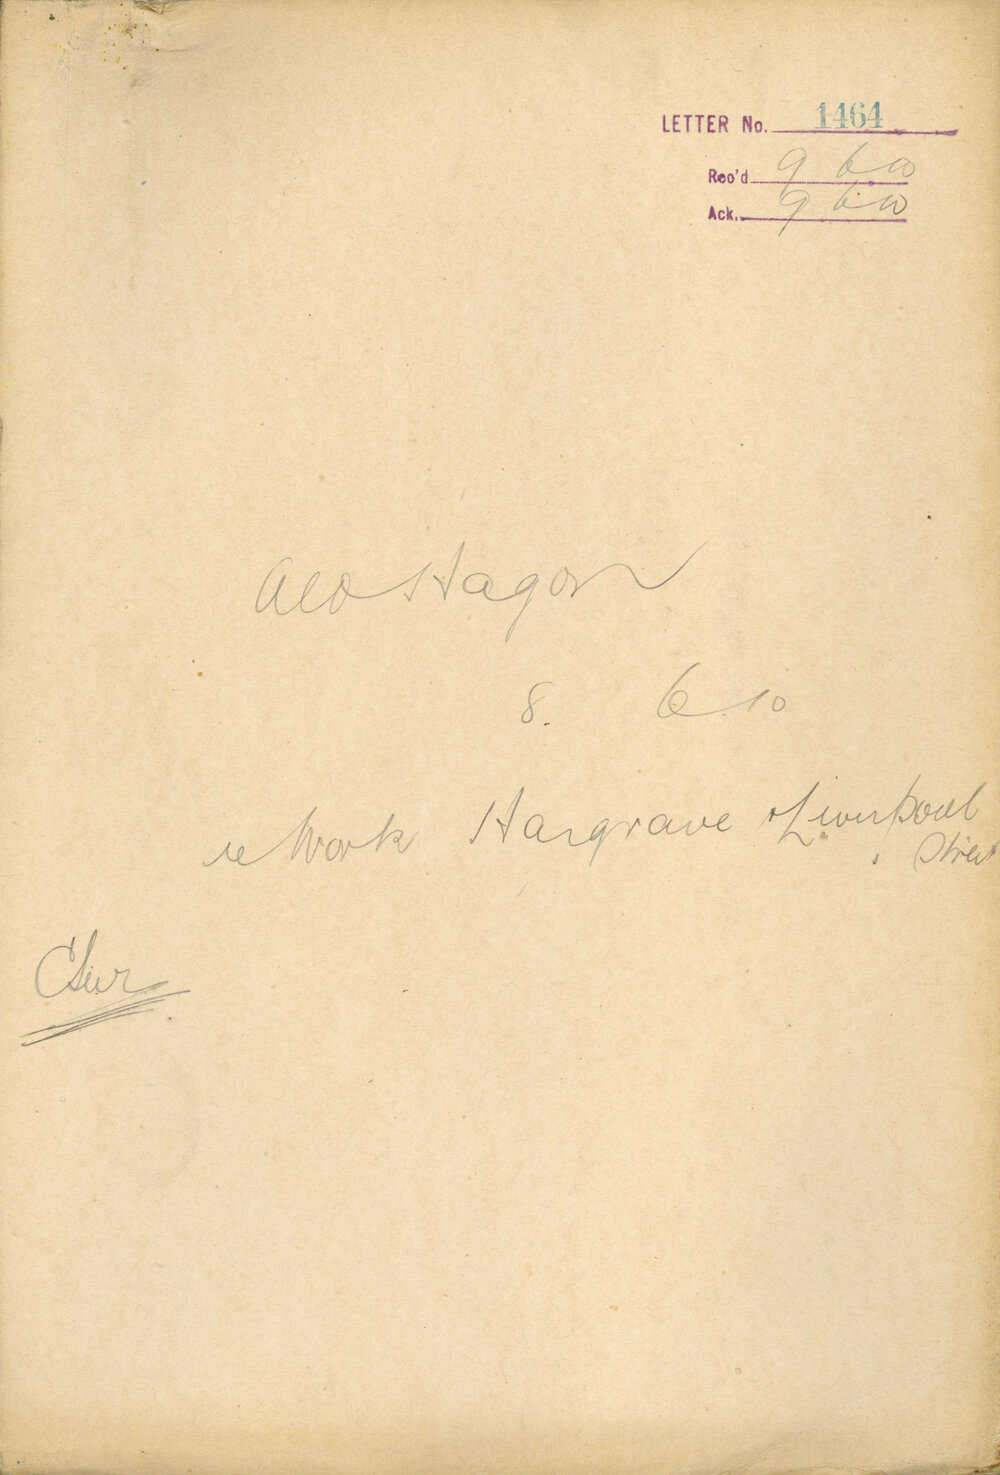 LETTER No. 1464
Rec'd 9 6 10
Ack. 9 6 10
Ald Hagon
8. 6 10
re Work Hargrave & Liverpool
Street